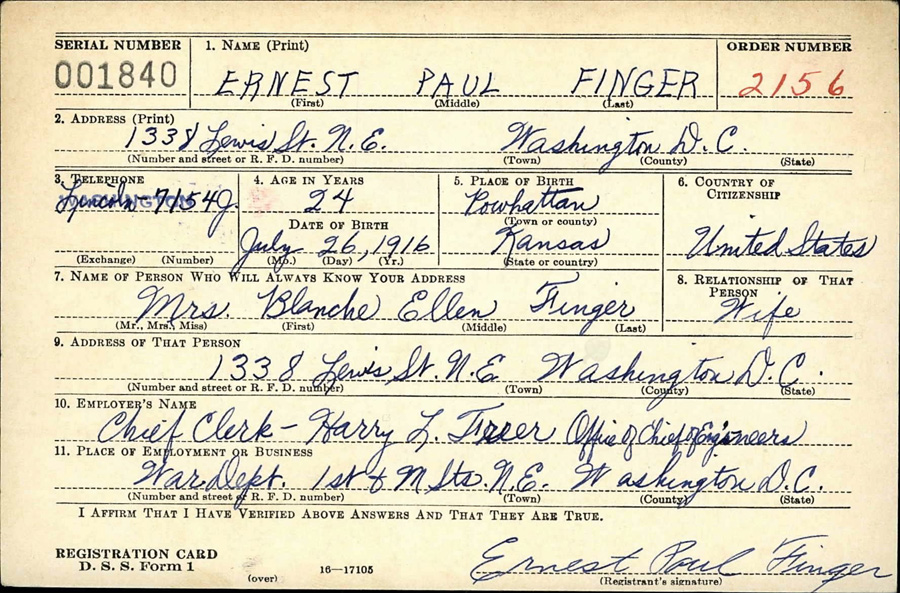 SERIAL NUMBER 1. NAME (Print) ORDER NUMBER
001840 ERNEST PAUL FINGER 2156
(First) (Middle) (Last)
2. ADDRESS (Print)
1338 Lewis St. N.E. Washington D.C.
(Number and street or R. F. D. number) (Town) (County) (State)
3. TELEPHONE 4. AGE IN YEARS 5. PLACE OF BIRTH 6. COUNTRY OF CITIZENSHIP
Lincoln-7154J 24 Powhattan
WASHINGTON
(Town or county)
DATE OF BIRTH
July 26, 1916 Kansas United States
(Exchange) (Number) (Mo.) (Day) (Yr.) (State or country)
7. NAME OF PERSON WHO WILL ALWAYS KNOW YOUR ADDRESS 8. RELATIONSHIP OF THAT PERSON
Mrs. Blanche Ellen Finger Wife
(Mr., Mrs., Miss) (First) (Middle) (Last)
9. ADDRESS OF THAT PERSON
1338 Lewis St. N.E Washington D.C.
(Number and street or R. F. D. number) (Town) (County) (State)
10. EMPLOYER'S NAME
Chief Clerk - Harry L. Office of Chief of Engineers
11. PLACE OF EMPLOYMENT OR BUSINESS
War Dept. 1st & M Sts. N.E. Washington D.C.
(Number and street or R. F. D. number) (Town) (County) (State)
I AFFIRM THAT I HAVE VERIFIED ABOVE ANSWERS AND THAT THEY ARE TRUE.
REGISTRATION CARD
D. S. S. Form 1 (over) 16—17105
Ernest Paul Finger
(Registrant's signature)